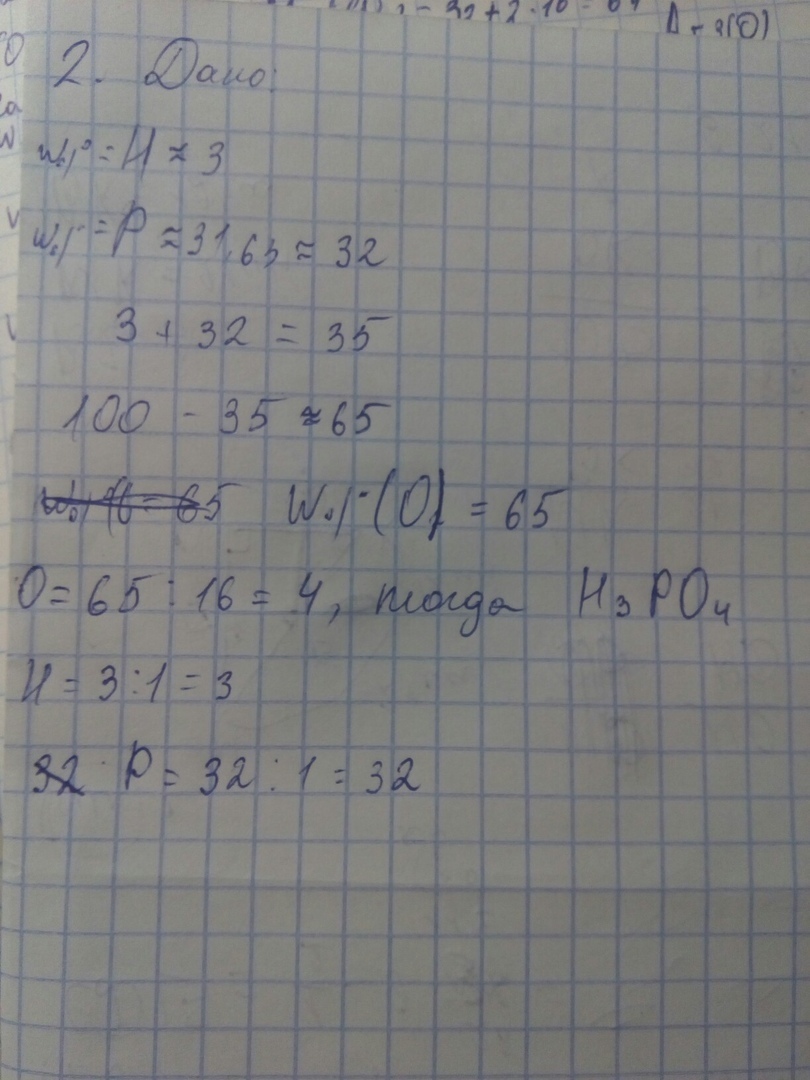 - 32 + 2 · 16 = 64
2. Дано:
W% = H ≈ 3
W% = P ≈ 31,65 ≈ 32
3 + 32 = 35
100 - 35 ≈ 65
W% (O) = 65
O = 65 : 16 = 4, тогда H₃PO₄
H = 3 : 1 = 3
32 P = 32 : 1 = 32